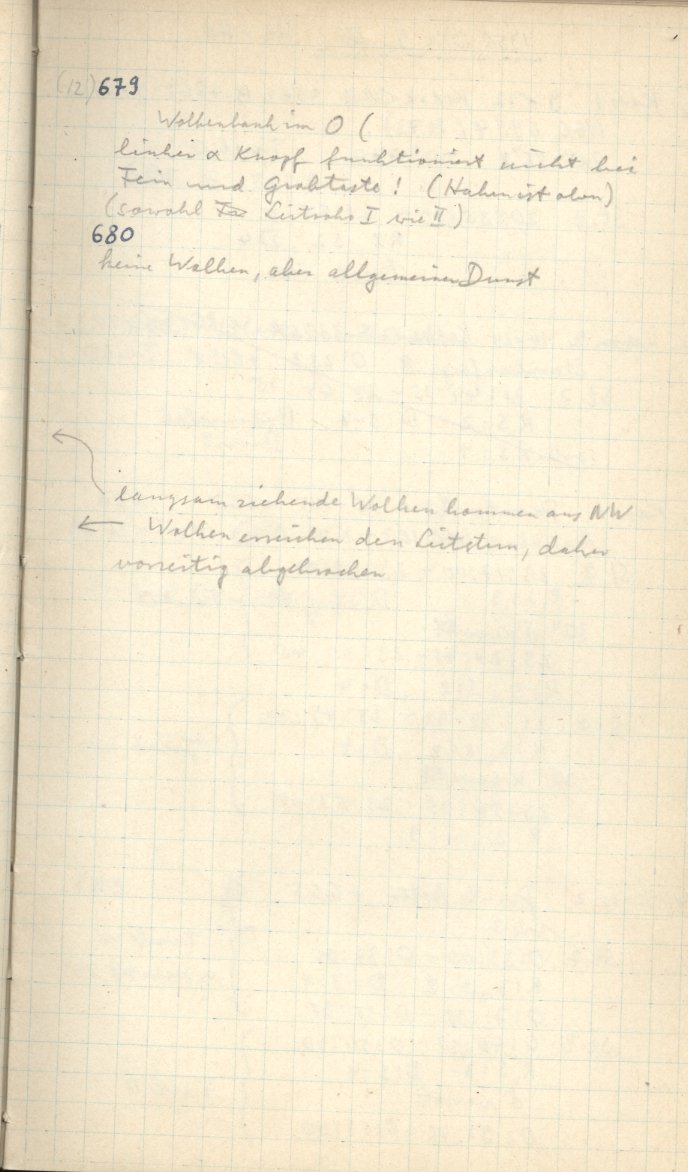 (12) 679
Wolkenbank im O (
linker α Knopf funktioniert nicht bei
Fein und Grobtaste! (Haken ist oben)
(sowohl Leitrohr I wie II)
680
keine Wolken, aber allgemeiner Dunst
langsam ziehende Wolken kommen aus NW
← Wolken erreichen den Leitstern, daher
vorzeitig abgebrochen